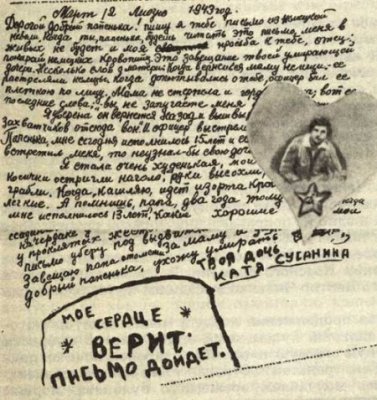 Март 12 Лиозно 1943 год.
Дорогой добрый папенька! пишу я тебе письмо из немецкой
неволи. Когда ты, папенька, будешь читать это письмо, меня в
живых не будет и моя просьба к тебе, отец:
покарай немецких кровопийц. Это завещание твоей умирающей
дочери. Несколько слов о матери. Когда вернёшься, маму не ищи. ее
расстреляли немцы. Когда допытывались о тебе, офицер бил ее
плеткою по лицу. Мама не стерпела и гордо вот ее
последние слова: „вы не запугаете меня
Я уверена он вернется назад и вышвырнет
захватчиков отсюда вон". И офицер выстрелил
Папенька, мне сегодня исполнилось 15 лет и если
встретил меня, то не узнал бы свою дочь
Я стала очень худенькая, мои
косички остригли наголо, руки высохли,
грабли. Когда, кашляю, идет изо рта кровь
легкие. А помнишь, папа, два года тому когда
мне исполнилось 13 лет? Какие хорошие мои
у проклятых
письмо уберу под
Завещаю папа отомсти: за маму и
добрый папенька, ухожу умирать
ТВОЯ ДОЧЬ
КАТЯ СУСАНИНА
МОЕ
СЕРДЦЕ
ВЕРИТ.
ПИСЬМО ДОЙДЕТ.